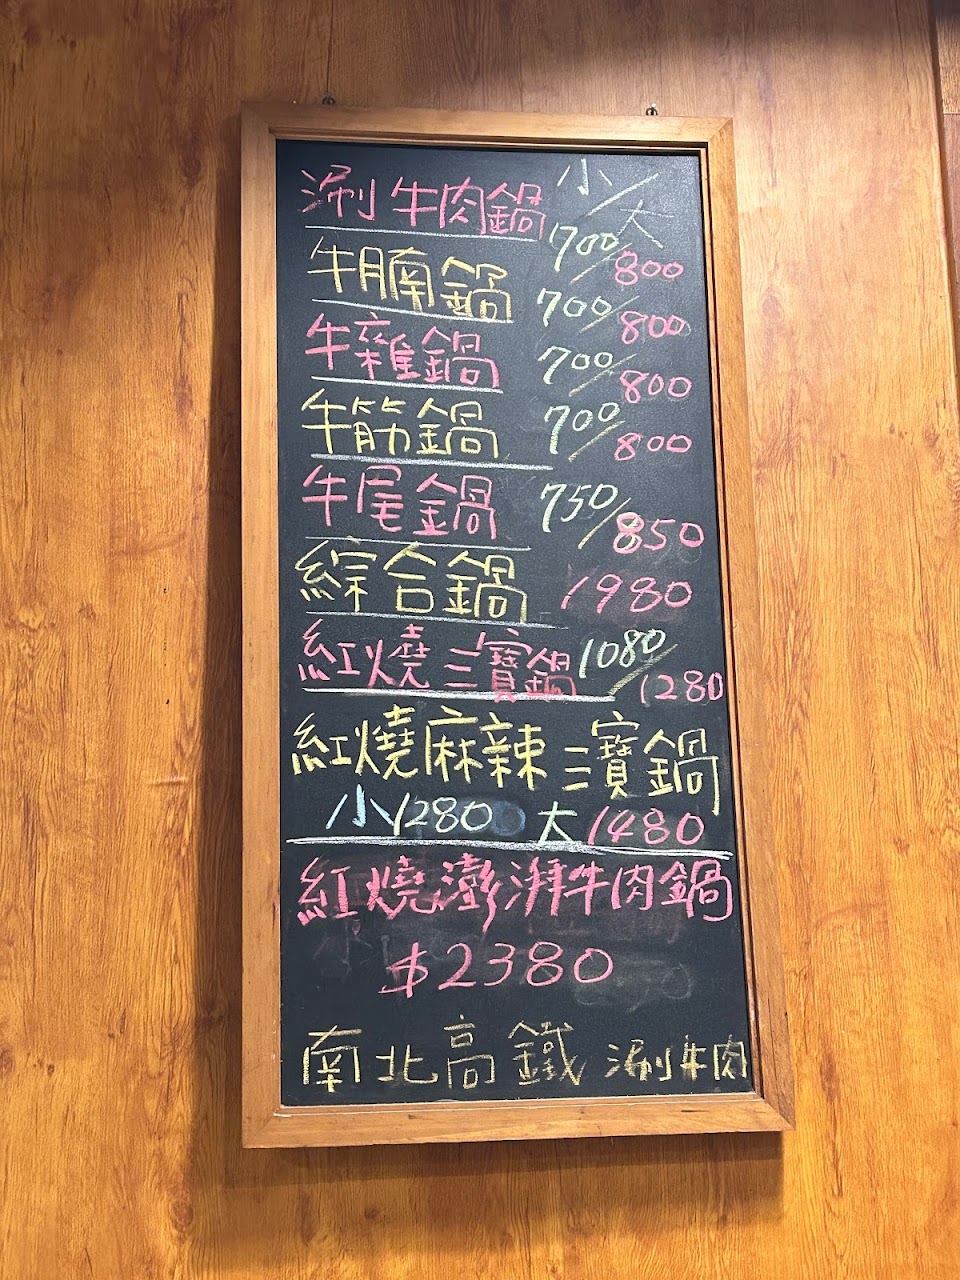 小/大
涮牛肉鍋 700/800
牛腩鍋 700/800
牛雜鍋 700/800
牛筋鍋 700/800
牛尾鍋 750/850
綜合鍋 1980
紅燒三寶鍋 1080/1280
紅燒麻辣三寶鍋
小1280 大1480
紅燒澎湃牛肉鍋
$2380
南北高鐵 涮牛肉